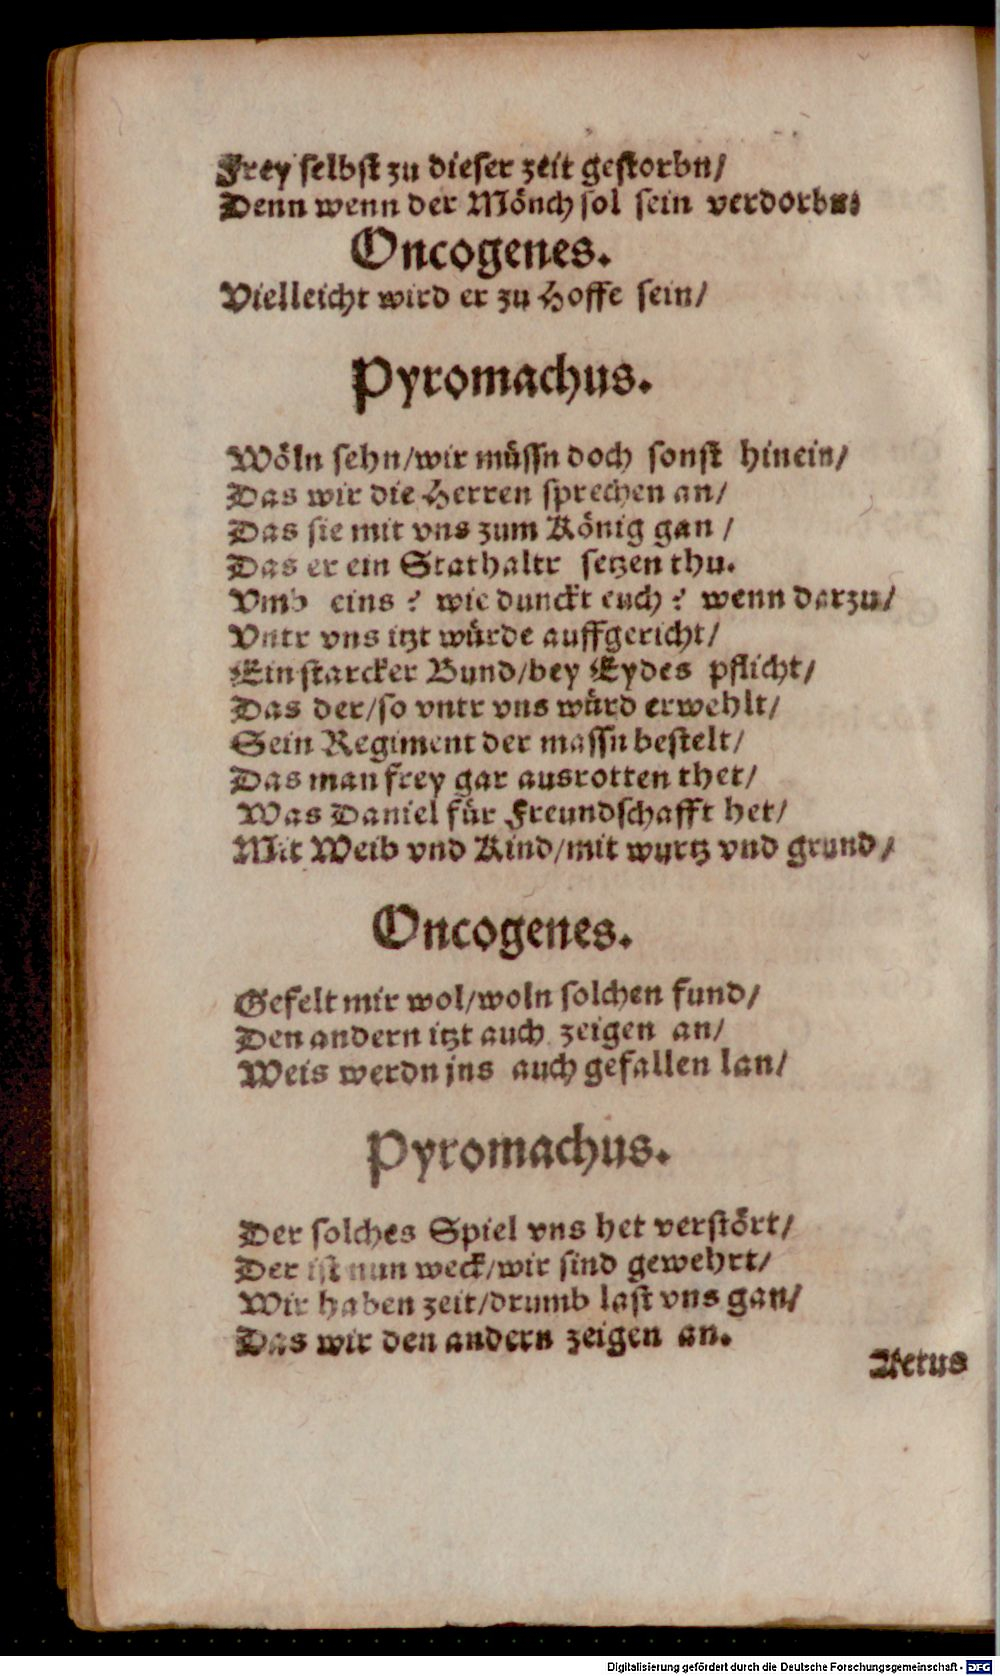 Frey selbst zu dieser zeit gestorbn/
Denn wenn der Mönch sol sein verdorbn:
Oncogenes.
Vielleicht wird er zu Hoffe sein/
Pyromachus.
Wöln sehn/wir müssn doch sonst hinein/
Das wir die Herren sprechen an/
Das sie mit vns zum König gan /
Das er ein Stathaltr setzen thu.
Vmb eins ? wie dunckt euch ? wenn darzu/
Vntr vns itzt würde auffgericht/
Ein starcker Bund/bey Eydes pflicht/
Das der/so vntr vns würd erwehlt/
Sein Regiment der massn bestelt/
Das man frey gar ausrotten thet/
Was Daniel für Freundschafft het/
Mit Weib vnd Kind/mit wurtz vnd grund/
Oncogenes.
Gefelt mir wol/woln solchen fund/
Den andern itzt auch zeigen an/
Weis werdn jns auch gefallen lan/
Pyromachus.
Der solches Spiel vns het verstört/
Der ist nun weck/wir sind gewehrt/
Wir haben zeit/drumb last vns gan/
Das wir den andern zeigen an.
Actus
Digitalisierung gefördert durch die Deutsche Forschungsgemeinschaft - DFG